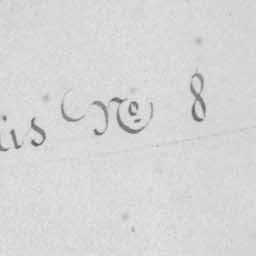 is Nº 8